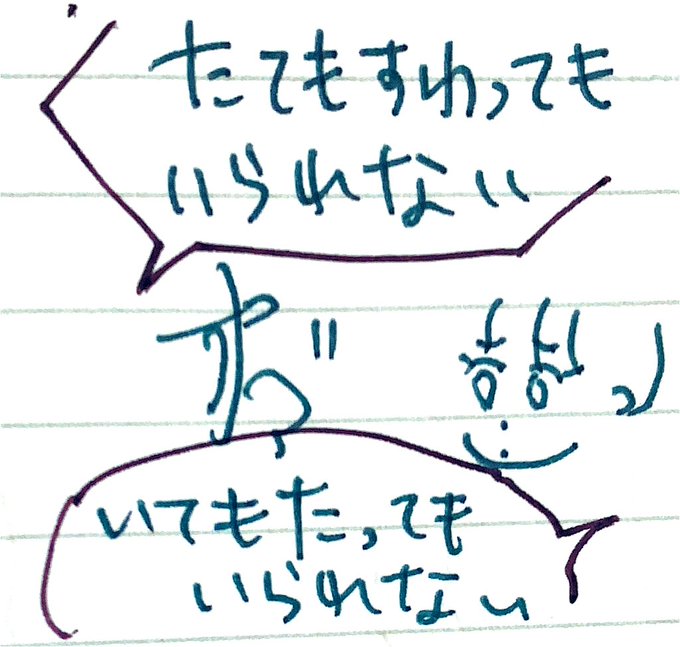 たてもすわっても
いられない
いてもたっても
いられない